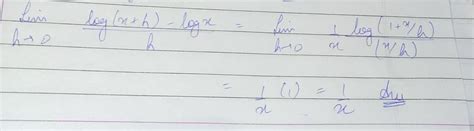 Lim h→0 (log(x+h) - log x)/h = Lim h→0 1/x log(1+x/h)/(x/h)
= 1/x (1) = 1/x Ans